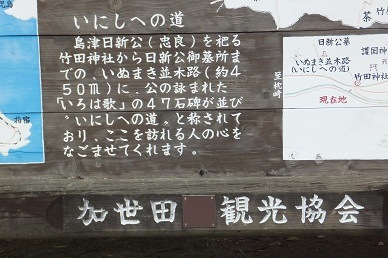 いにしへの道
島津日新公(忠良)を祀る
竹田神社から日新公御墓所ま
での、いぬまき並木路(約4
50m)に、公の詠まれた
「いろは歌」の47石碑が並び
“いにしへの道〟と称されて
おり、ここを訪れる人の心を
なごませてくれます。
日新公墓
いぬまき並木路
(いにしへの道)
竹田神社
至枕崎
現在地
指宿
茶
竹
加世田 観光協会